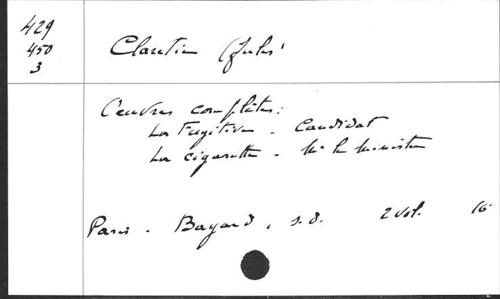 429
450
3
Claretie (Jules)
Oeuvres complètes:
La Fugitive - Candidat
La cigarette - Mr le Ministre
Paris - Bayard, s.d. 2 vol. 16